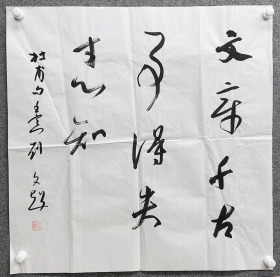 文章千古
事得失
寸心知
杜甫句